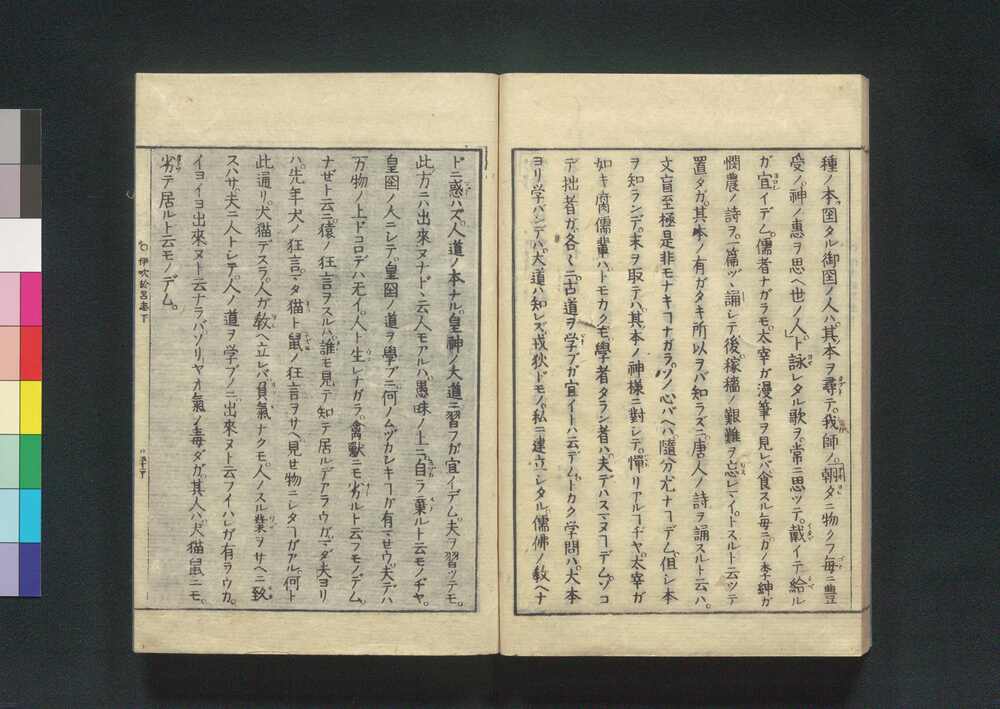 種ノ本国タル御国ノ人ハ其本ヲ尋テ我師ノ朝夕ニ物クフ毎ニ豊
受ノ神ノ恵ヲ思ヘ世ノ人ト詠レタル歌ヲ常ニ思ツテ戴イテ給ル
ガ宜イデム儒者ナガラモ太宰ガ漫筆ヲ見レバ食スル毎ニカノ李紳ガ
憫農ノ詩ヲ一篇ヅヽ誦シテ後稼穡ノ艱難ヲ忘レマイトスルト云ツテ
置タガ其本ノ有ガタキ所以ヲバ知ラズニ唐人ノ詩ヲ誦スルト云ハ
文盲至極是非モナキヿナガラソノ心バヘハ随分尤ナヿデム但シ本
ヲ知ランデ末ヲ取テハ其本ノ神様ニ対シテ憚リアルヿヂヤ太宰ガ
如キ腐儒輩ハトモカクモ学者タラン者ハ夫デハスマヌヿデムソコ
デ拙者ガ各々ニ古道ヲ学ブガ宜イトハ云デムトカク学問ハ大本
ヨリ学バンデハ大道ハ知レズ戎狄ドモノ私ニ建立シタル儒佛ノ教ヘナ
ドニ惑ハズ人道ノ本ナル皇神ノ大道ニ習フガ宜イデム夫ヲ習ツテモ
此方ニハ出来ヌナドヽ云人モアルハ愚昧ノ上ニ自ラ棄ルト云モノヂヤ
皇国ノ人ニシテ皇国ノ道ヲ学ブニ何ノムヅカシキヿガ有ませウ夫デハ
万物ノ上ドコロデハ无イ人ト生レナガラ禽獣ニモ劣ルト云フモノデム
ナゼト云ニ猿ノ狂言ヲスルハ誰モ見テ知テ居ルデアラウガマダ夫ヨリ
ハ先年犬ノ狂言マタ猫ト鼠ノ狂言ヲサヘ見せ物ニシタヿガアル何ト
此通リ犬猫デスラ人ガ教ヘ立レバ負氣ナクモ人ノスル業ヲサヘニ致
スハサ夫ニ人トシテ人ノ道ヲ学ブノニ出来ヌト云フイハレガ有ラウカ
イヨイヨ出来ヌト云ナラバソリヤオ氣ノ毒ダガ其人ハ犬猫鼠ニモ
劣テ居ルト云モノデム
伊吹於呂志下